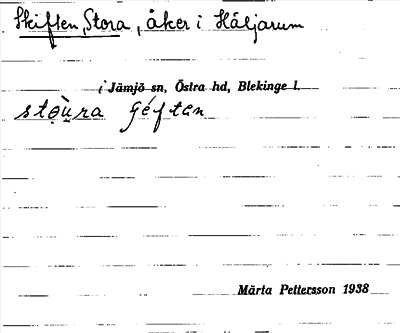 Skiften, Stora, åker i Häljarum
i Jämjö sn, Östra hd, Blekinge l.
Märta Pettersson 1938